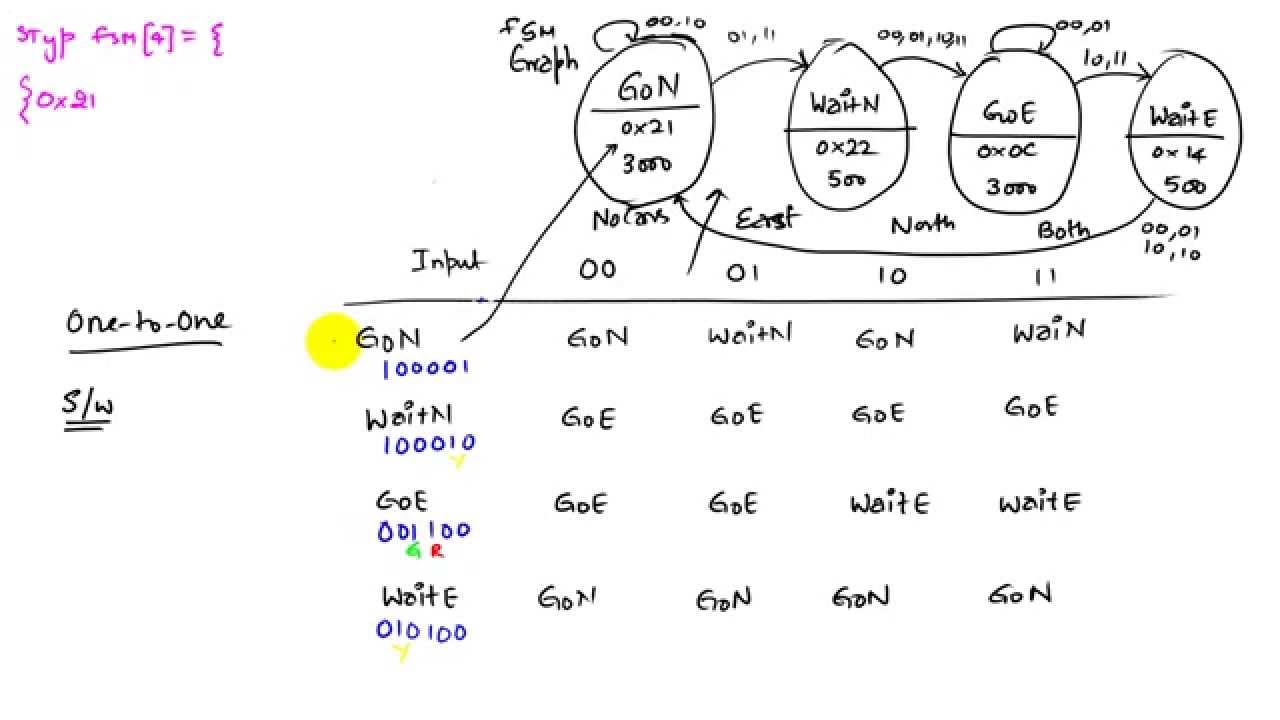 STyp fSM[4] = {
{0x21
fSM
Graph
00,10
01,11
00,01,10,11
00,01
10,11
GoN
0x21
3000
WaitN
0x22
500
GoE
0x0C
3000
WaitE
0x14
500
00,01
10,10
NoCars East North Both
Input 00 01 10 11
One-to-One
S/W
GoN GoN WaitN GoN WaiN
100001
WaitN GoE GoE GoE GoE
100010
Y
GoE GoE GoE WaitE WaitE
001100
G R
WaitE GoN GoN GoN GoN
010100
Y